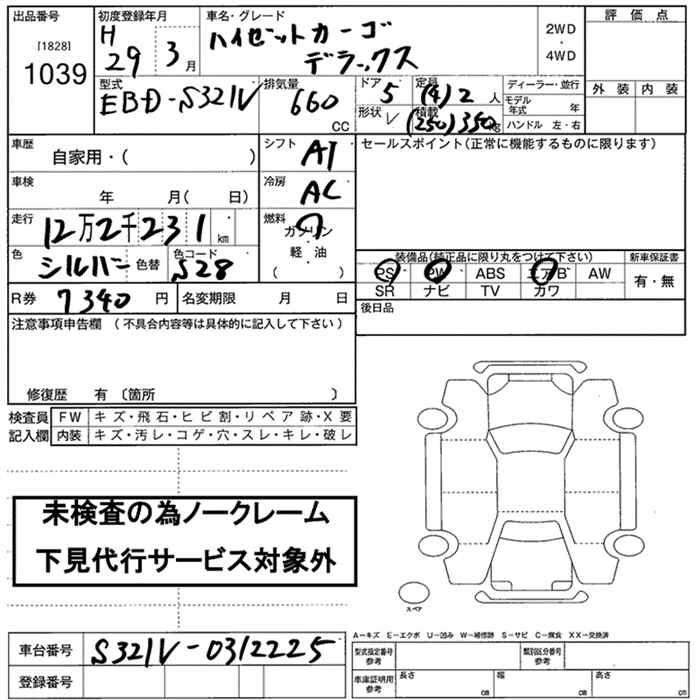 出品番号
[1828]
1039
初度登録年月
H
29 3月
車名・グレード
ハイゼットカーゴ
デラックス
2WD
・
4WD
評価点
外装 内装
型式
EBD-S321V
排気量
660
CC
ドア
5
定員
(4)2人
形状
V
積載
(250)350kg
ディーラー・並行
モデル年式 年
ハンドル 左・右
車歴
自家用・( )
シフト
AT
セールスポイント(正常に機能するものに限ります)
車検
年 月( 日)
冷房
AC
走行
12万2千231km
燃料
ガソリン
軽・油
( )
色
シルバー
色替
色コード
S28
装備品(純正品に限り丸をつけて下さい)
PS PW ABS エアB AW
SR ナビ TV カワ
新車保証書
有・無
R券 7340円
名変期限 月 日
後日品
注意事項申告欄 (不具合内容等は具体的に記入して下さい)
修復歴 有〔箇所 〕
検査員
記入欄
FW キズ・飛石・ヒビ割・リペア跡・X要
内装 キズ・汚レ・コゲ・穴・スレ・キレ・破レ
未検査の為ノークレーム
下見代行サービス対象外
スペア
A=キズ E=エクボ U=凹み W=補修跡 S=サビ C=腐食 XX=交換済
車台番号 S321V-0312225
登録番号
型式指定番号
参考
類別区分番号
参考
車庫証明用
参考
長さ cm
幅 cm
高さ cm